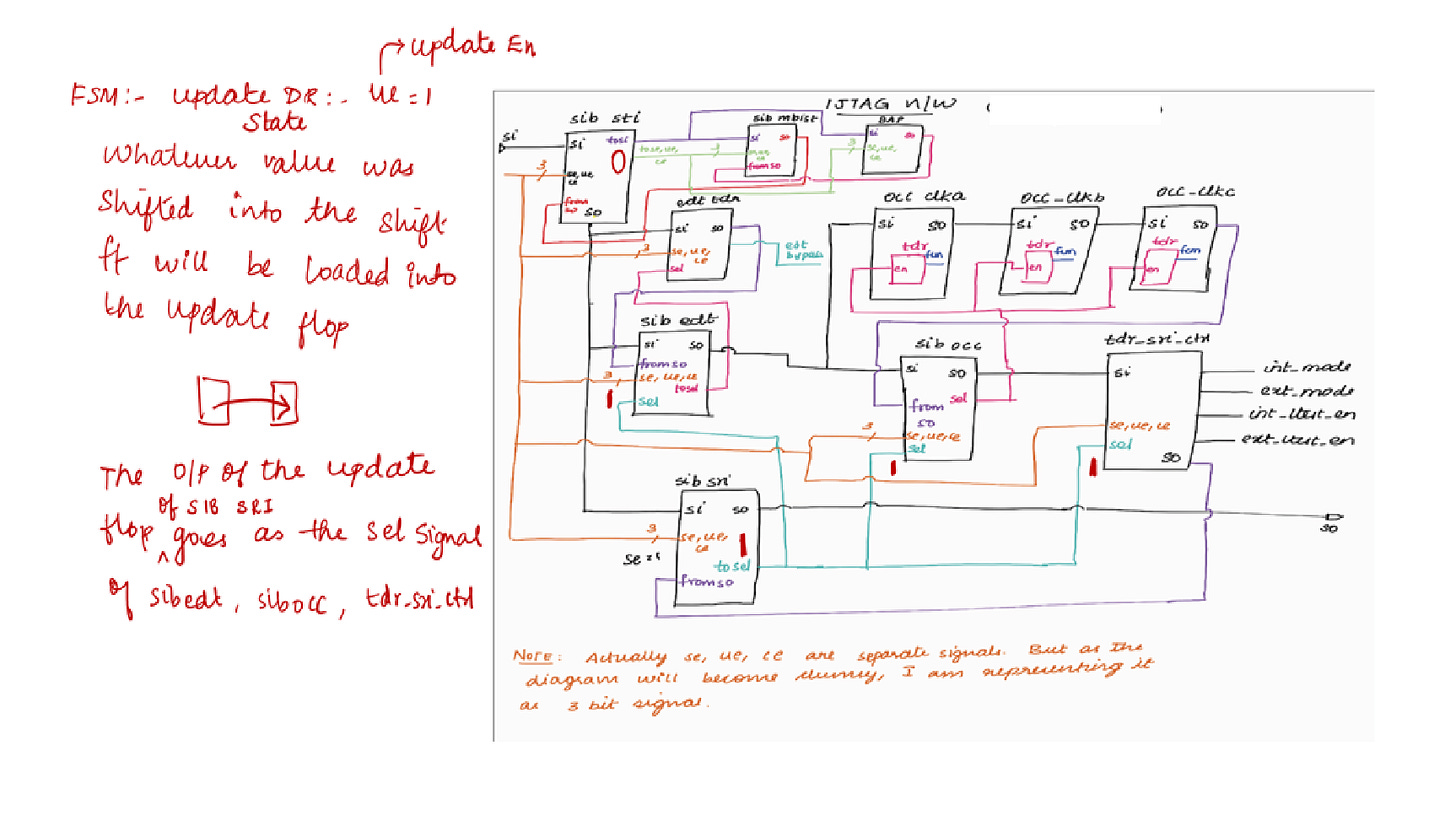 update En
FSM:- update DR:- ue = 1
State
Whatever value was
Shifted into the shift
ff will be loaded into
the update flop
The o/p of the update
of SIB SRI
flop ^ goes as the sel signal
of sibedt, sibocc, tdr-sri-ctrl
IJTAG N/W (
si
sib sti
si
tosi
0
3
se, ue,
ce
from
so
so
tose, ue,
ce
3
sib mbist
si
so
fromso
BAP
si
so
3
se, ue,
ce
edt tdr
si
so
3
se, ue,
ce
sel
edt
bypass
occ clka
si
so
tdr
en
fun
occ_clkb
si
so
tdr
en
fun
occ_clkc
si
so
tdr
en
fun
sib edt
si
so
fromso
3
se, ue, ce
tosel
1
sel
sib occ
si
so
from
so
sel
3
se, ue, ce
sel
1
tdr_sri_ctrl
si
se, ue, ce
sel
1
so
int_mode
ext_mode
int_ltest_en
ext_ltest_en
sib sri
si
so
3
se, ue,
ce
1
se = 1
to sel
fromso
so
NOTE: Actually se, ue, ce are separate signals. But as the
diagram will become clumsy, I am representing it
as 3 bit signal.